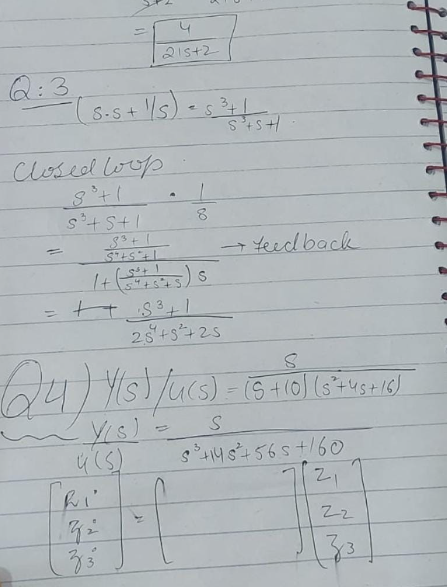 = 4/(21s+2)
Q:3
(s.s+1/s) = (s³+1)/(s³+s+1)
Closed loop
(s³+1)/(s³+s+1) · 1/s
= ((s³+1)/(s⁴+s²+1))/(1+((s³+1)/(s⁴+s²+s))s) → feedback
= (s³+1)/(2s⁴+s²+2s)
Q4) Y(s)/U(s) = s/((s+10)(s²+4s+16))
Y(s)/U(s) = s/(s³+14s²+56s+160)
[ż1 ż2 ż3] = [ ] [z1 z2 z3]